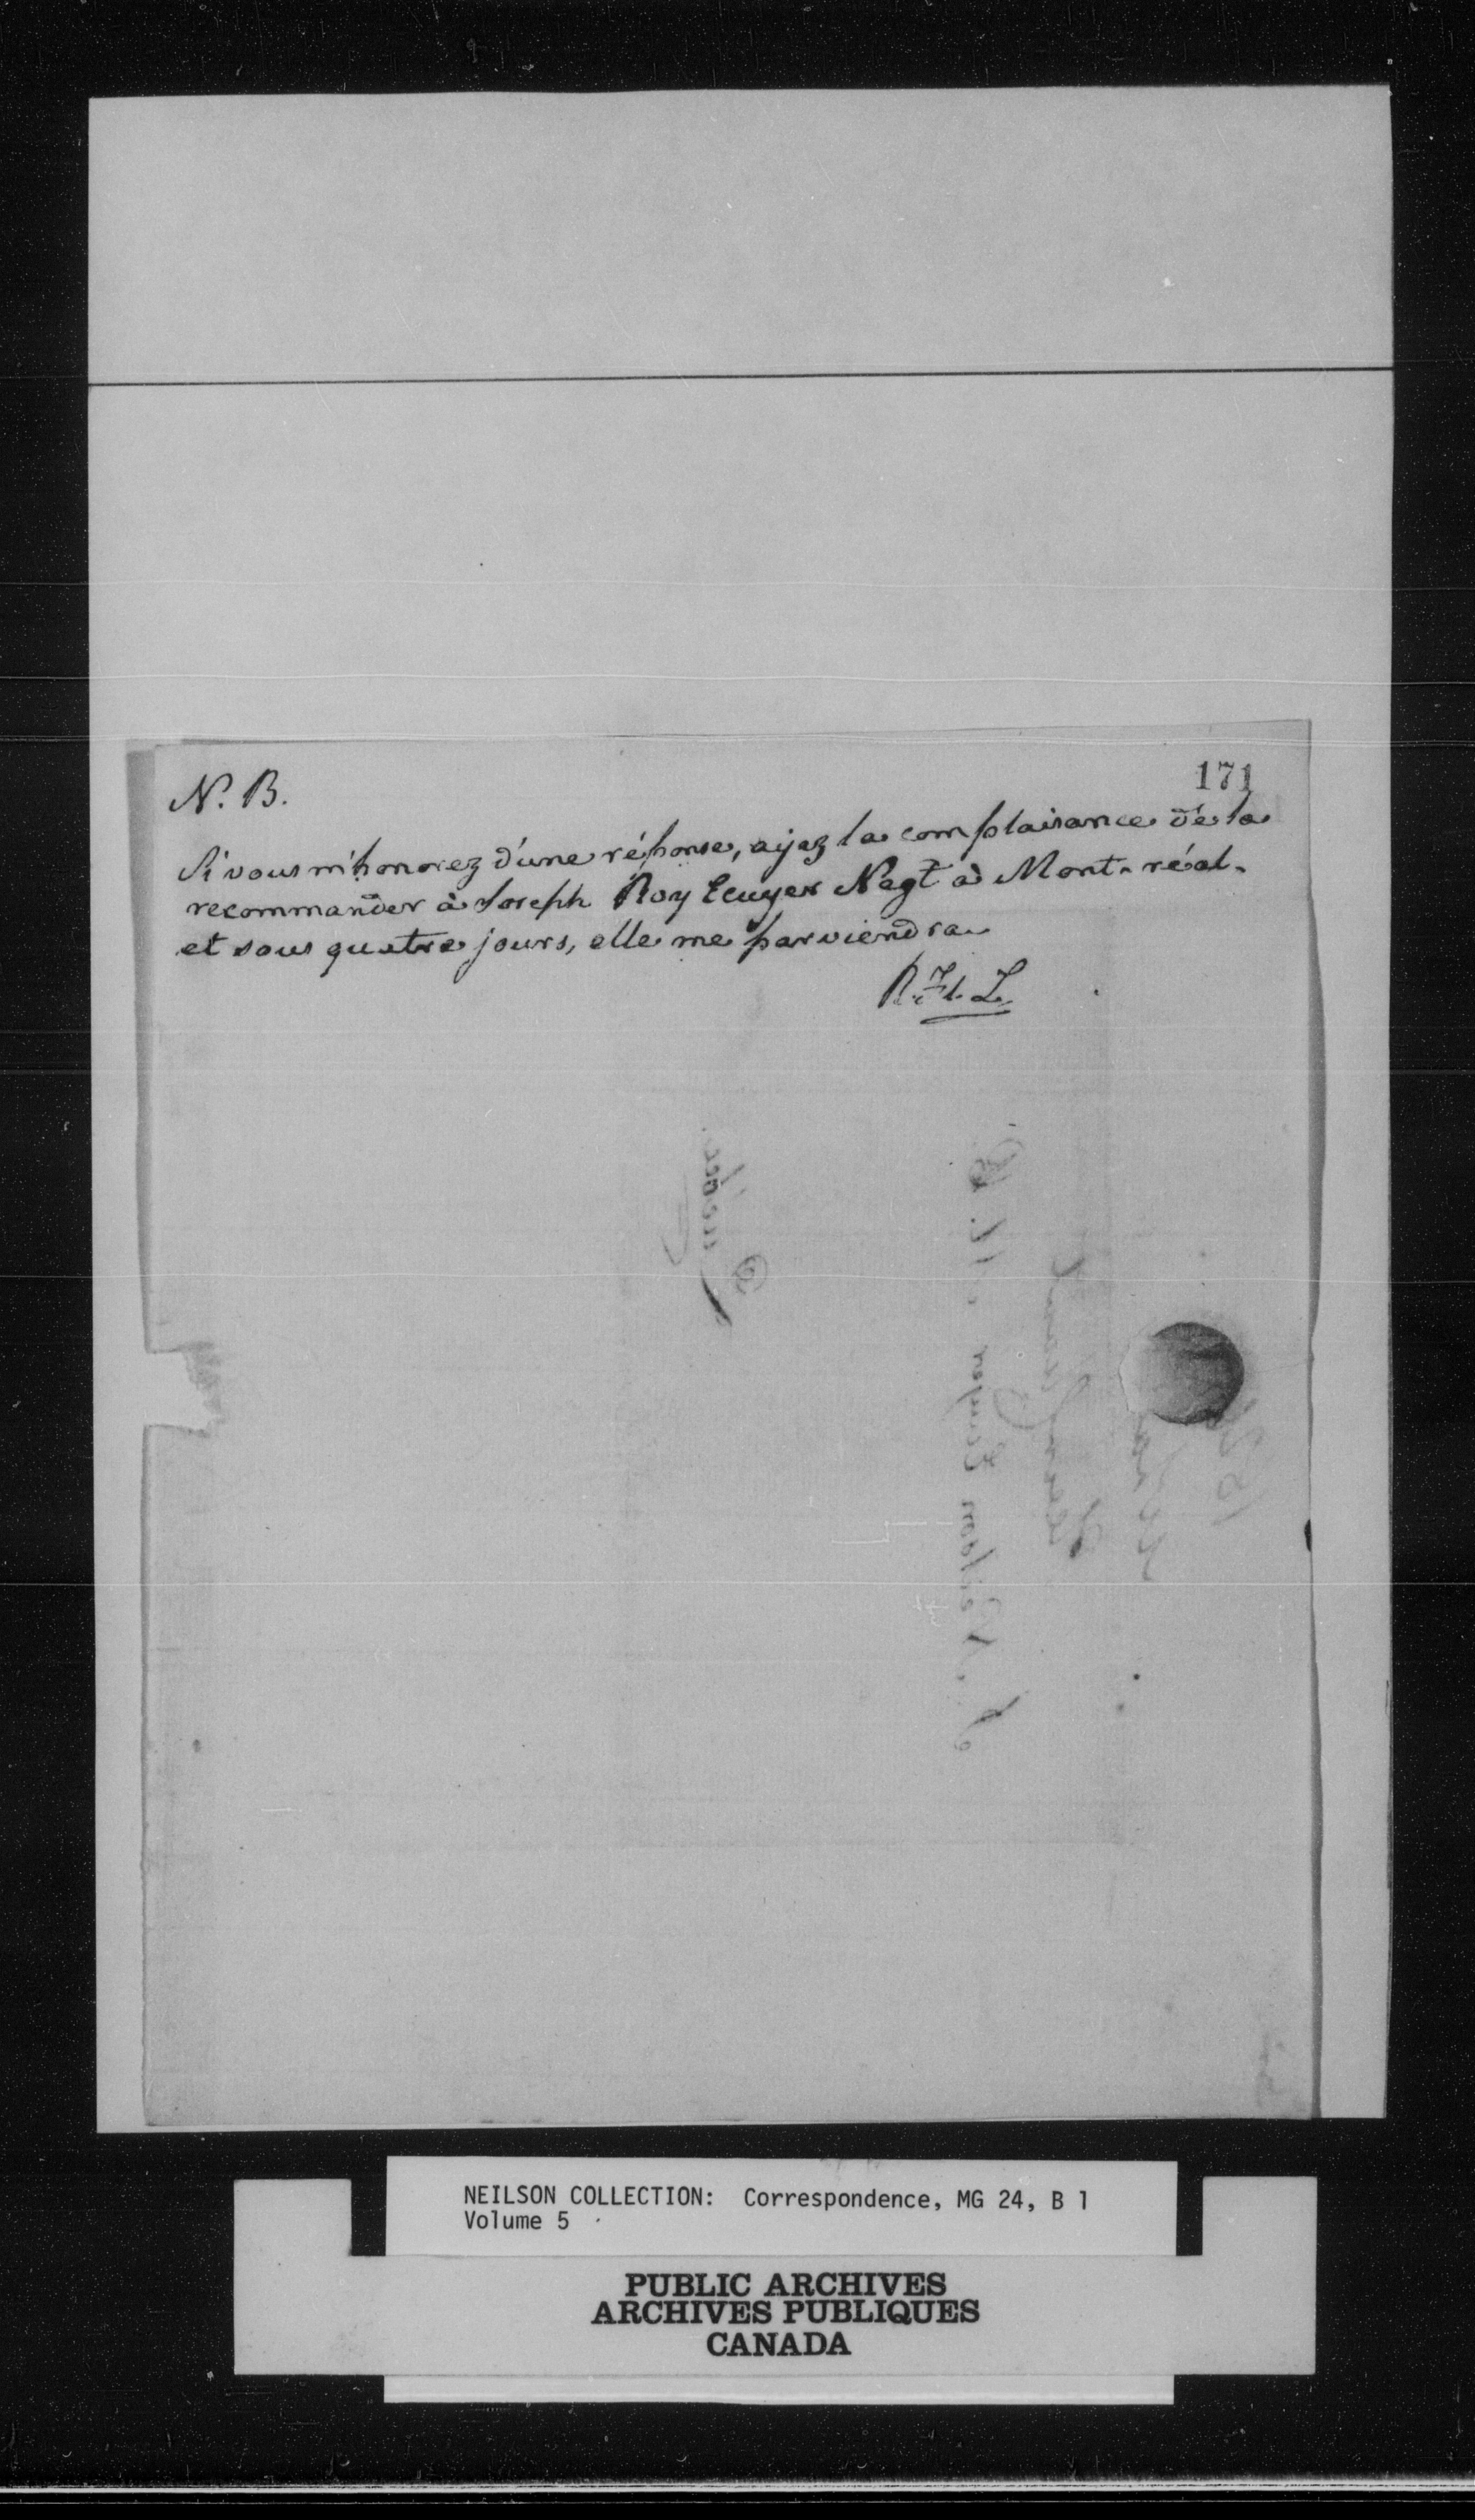 171
N. B.
Si vous m'honorez d'une réponse, ayez la complaisance de la
recommander à Joseph Roy Ecuyer Negt à Mont-réal.
et sous quatre jours, elle me parviendra
R. Fl. L
NEILSON COLLECTION: Correspondence, MG 24, B 1
Volume 5
PUBLIC ARCHIVES
ARCHIVES PUBLIQUES
CANADA